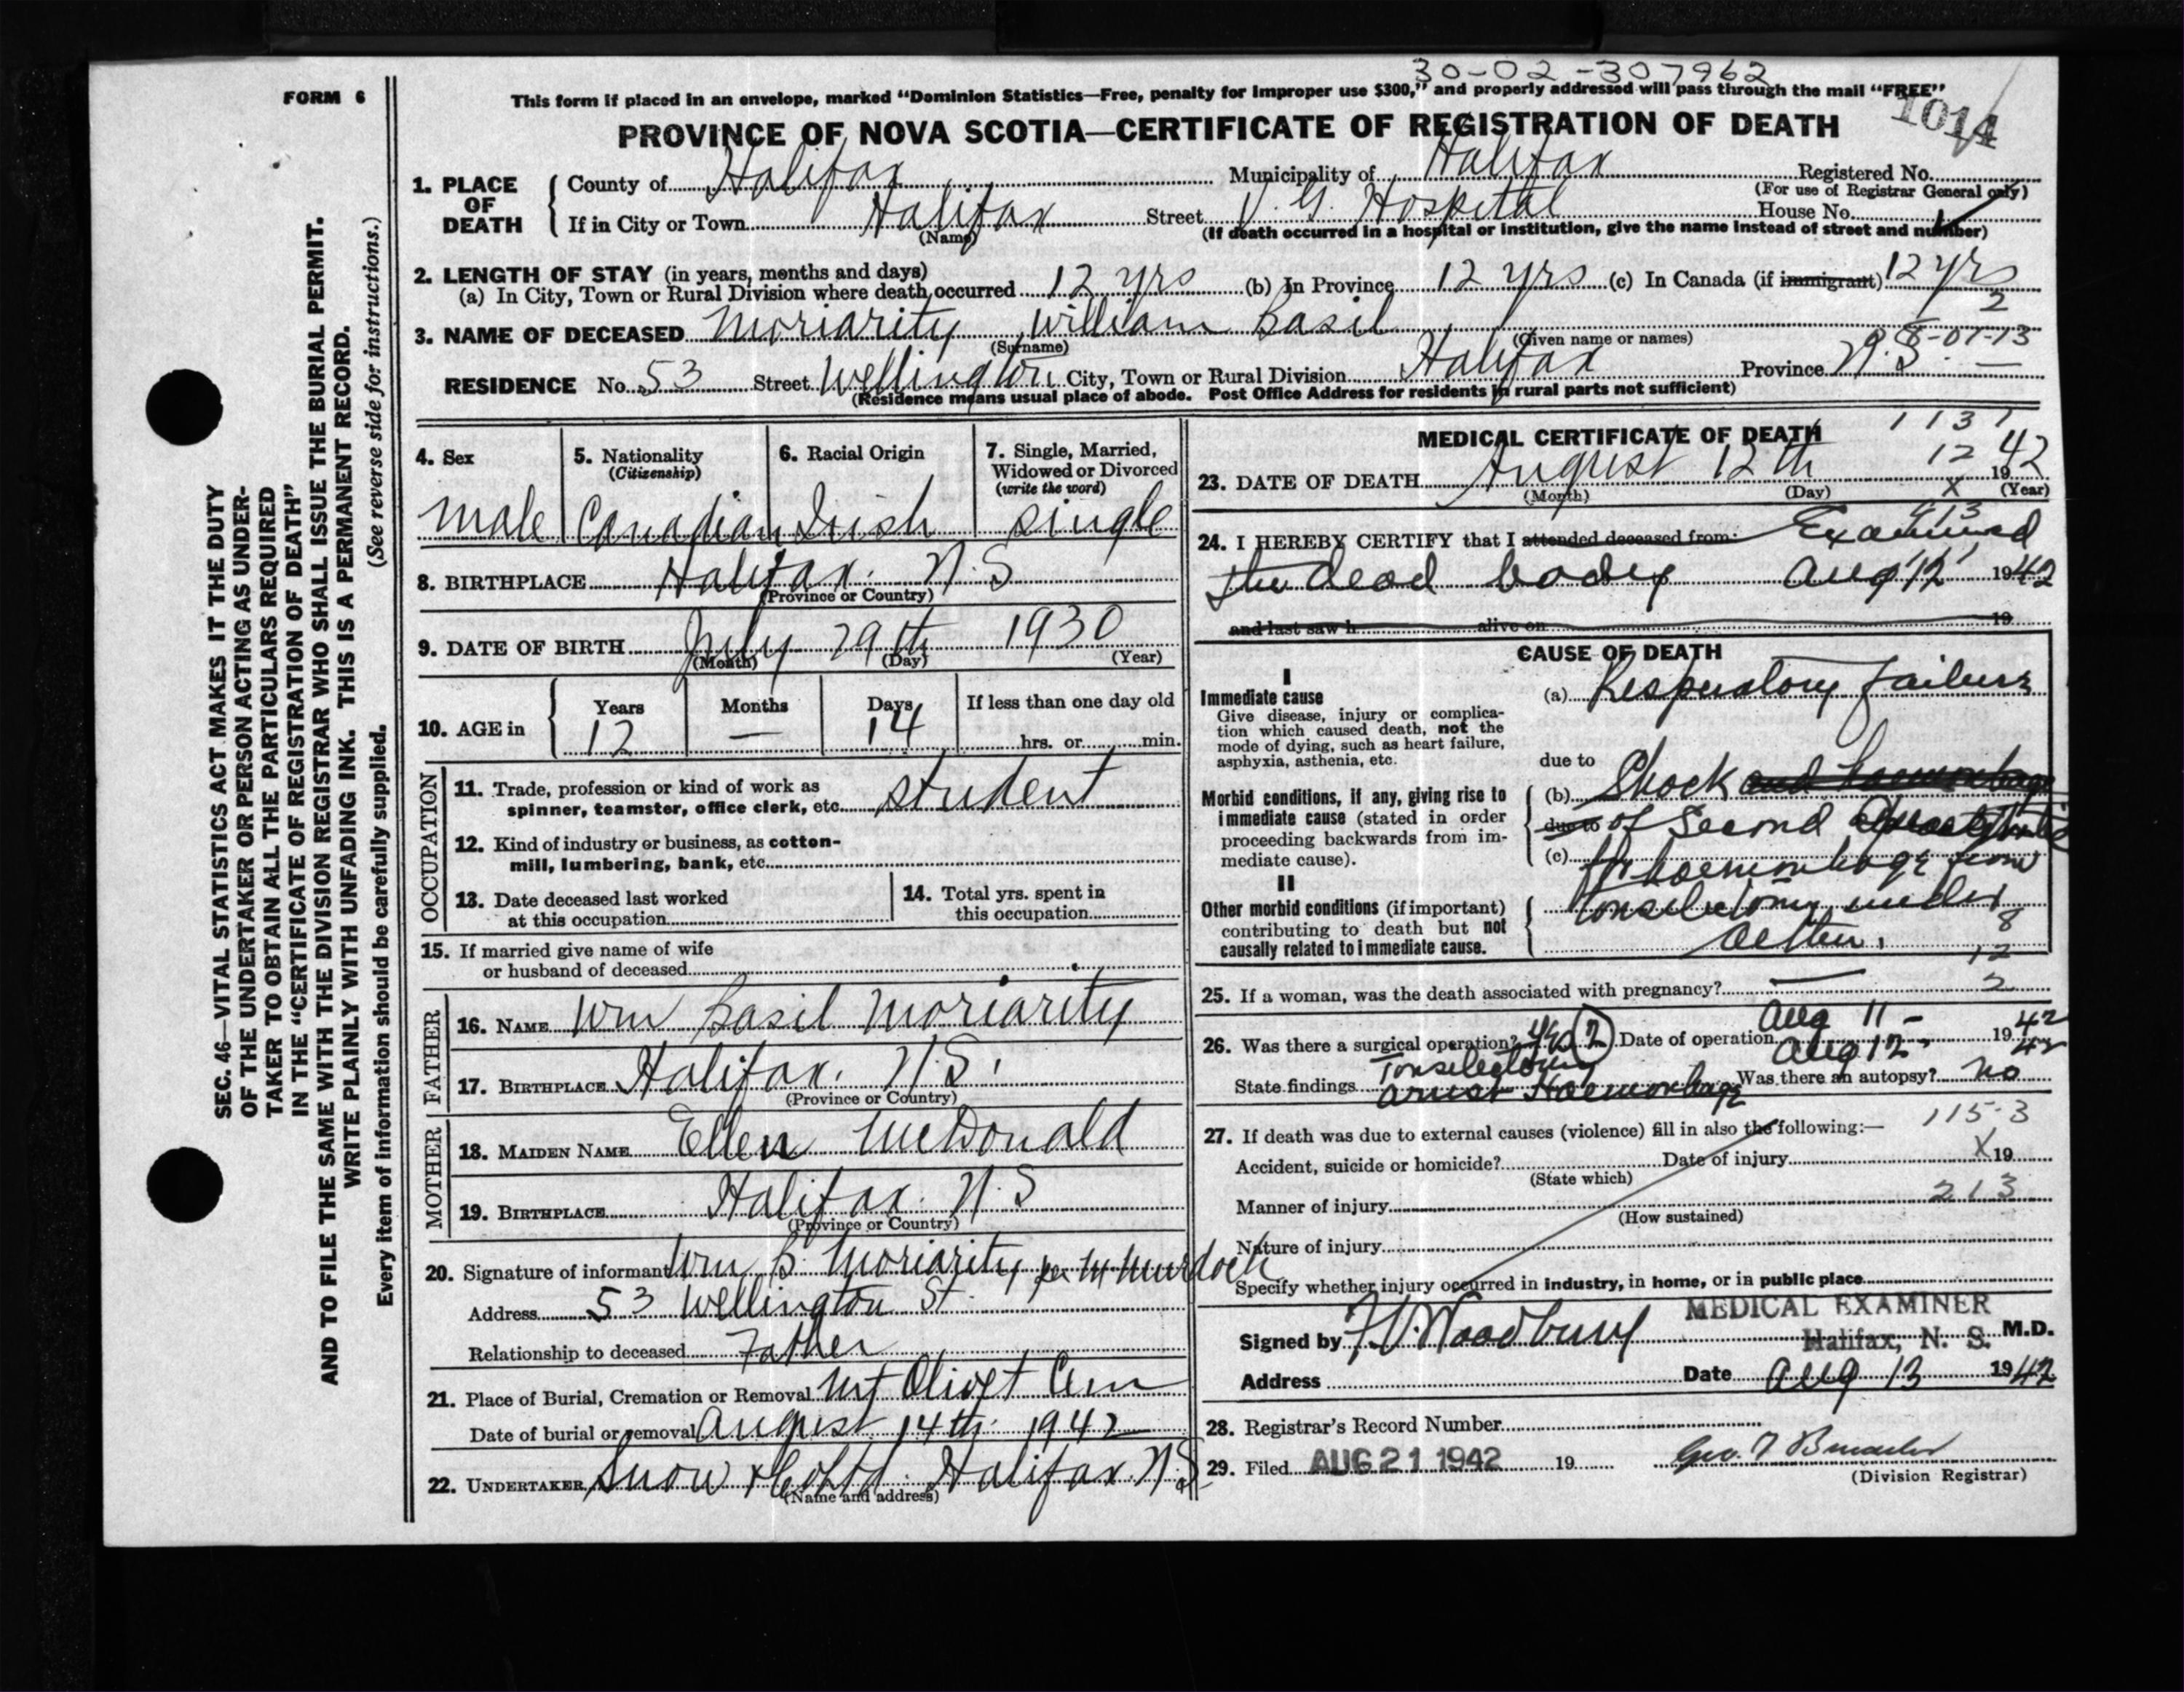 30-02-307962
FORM 6
This form if placed in an envelope, marked “Dominion Statistics—Free, penalty for improper use $300,” and properly addressed will pass through the mail “FREE”
1014
PROVINCE OF NOVA SCOTIA—CERTIFICATE OF REGISTRATION OF DEATH
SEC. 46—VITAL STATISTICS ACT MAKES IT THE DUTY
OF THE UNDERTAKER OR PERSON ACTING AS UNDER-
TAKER TO OBTAIN ALL THE PARTICULARS REQUIRED
IN THE “CERTIFICATE OF REGISTRATION OF DEATH”
AND TO FILE THE SAME WITH THE DIVISION REGISTRAR WHO SHALL ISSUE THE BURIAL PERMIT.
WRITE PLAINLY WITH UNFADING INK. THIS IS A PERMANENT RECORD.
(See reverse side for instructions.)
Every item of information should be carefully supplied.
1. PLACE OF DEATH
County of Halifax Municipality of Halifax Registered No.
(For use of Registrar General only)
If in City or Town Halifax Street V. G. Hospital House No.
(Name) (If death occurred in a hospital or institution, give the name instead of street and number)
2. LENGTH OF STAY (in years, months and days)
(a) In City, Town or Rural Division where death occurred 12 yrs (b) In Province 12 yrs (c) In Canada (if immigrant) 12 yrs
2
3. NAME OF DECEASED Moriarity William Basil
(Surname) (Given name or names)
8-01-13
RESIDENCE No. 53 Street Wellington City, Town or Rural Division Halifax Province N.S. —
(Residence means usual place of abode. Post Office Address for residents in rural parts not sufficient)
4. Sex
male
5. Nationality
(Citizenship)
Canadian
6. Racial Origin
Irish
7. Single, Married,
Widowed or Divorced
(write the word)
single
8. BIRTHPLACE Halifax. N.S
(Province or Country)
9. DATE OF BIRTH July 29th 1930
(Month) (Day) (Year)
10. AGE in
Years Months Days If less than one day old
12 — 14 hrs. or min.
OCCUPATION
11. Trade, profession or kind of work as
spinner, teamster, office clerk, etc. student
12. Kind of industry or business, as cotton-
mill, lumbering, bank, etc.
13. Date deceased last worked
at this occupation
14. Total yrs. spent in
this occupation
15. If married give name of wife
or husband of deceased
FATHER
16. NAME Wm Basil Moriarity
17. BIRTHPLACE Halifax. N.S.
(Province or Country)
MOTHER
18. MAIDEN NAME Ellen McDonald
19. BIRTHPLACE Halifax. N.S
(Province or Country)
20. Signature of informant Wm B. Moriarity per M Murdoch
Address 53 Wellington St.
Relationship to deceased Father
21. Place of Burial, Cremation or Removal Mt Olivet Cem
Date of burial or removal August 14th 1942
22. UNDERTAKER Snow & Co Ltd. Halifax. N.S
(Name and address)
MEDICAL CERTIFICATE OF DEATH
1131
12
23. DATE OF DEATH August 12th 1942
(Month) (Day) (Year)
X
913
24. I HEREBY CERTIFY that I attended deceased from: Examined
the dead body Aug 12 1942
and last saw h alive on 19
CAUSE OF DEATH
I
Immediate cause
Give disease, injury or complica-
tion which caused death, not the
mode of dying, such as heart failure,
asphyxia, asthenia, etc.
(a) Respiratory Failure
due to
Morbid conditions, if any, giving rise to
immediate cause (stated in order
proceeding backwards from im-
mediate cause).
(b) Shock and haemorrhage
due to of second
(c) for haemorrhage from
II
Other morbid conditions (if important)
contributing to death but not
causally related to immediate cause.
Tonselectomy under
aether.
8
12
2
25. If a woman, was the death associated with pregnancy? —
26. Was there a surgical operation? yes (2) Date of operation Aug 11- 1942
Aug 12- 42
State findings Tonselectomy
arrest Haemorrhage Was there an autopsy? No
115-3
27. If death was due to external causes (violence) fill in also the following:—
Accident, suicide or homicide? Date of injury X 19
(State which)
213
Manner of injury
(How sustained)
Nature of injury
Specify whether injury occurred in industry, in home, or in public place
MEDICAL EXAMINER
Signed by F V Woodbury Halifax, N. S. M.D.
Address Date Aug 13 1942
28. Registrar's Record Number
29. Filed AUG 21 1942 19 Geo. 
(Division Registrar)